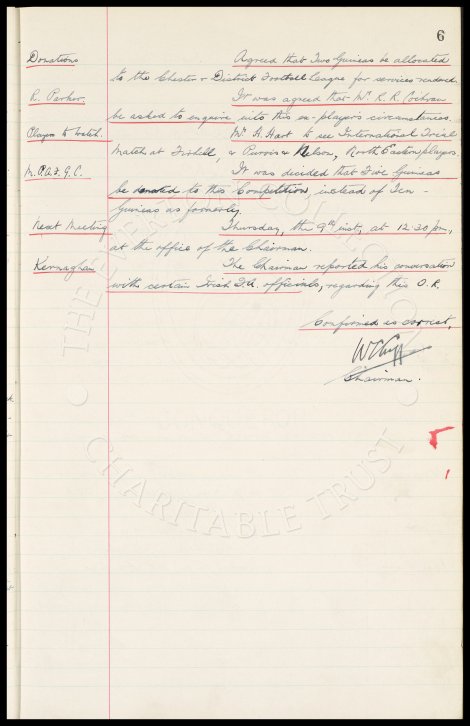 6
Donations Agreed that Two Guineas be allocated
to the Chester & District Football League for services rendered.
R. Parker. It was agreed that Mr R. R. Cochran
be asked to enquire into this ex-players circumstances.
Players to Watch. Mr A. Hart to see International Trial
Match at Firhill, & Purvis & Nelson, North Eastern players.
It was decided that Five Guineas
be donated to this Competition, instead of Ten
Guineas as formerly.
Next Meeting Thursday, the 9th inst, at 12.30 pm,
at the office of the Chairman.
Kernaghan The Chairman reported his conversation
with certain Irish F.A. officials, regarding this O.R.
Confirmed as correct,
Chairman.
THE EVERTON COLLECTION
CHARITABLE TRUST